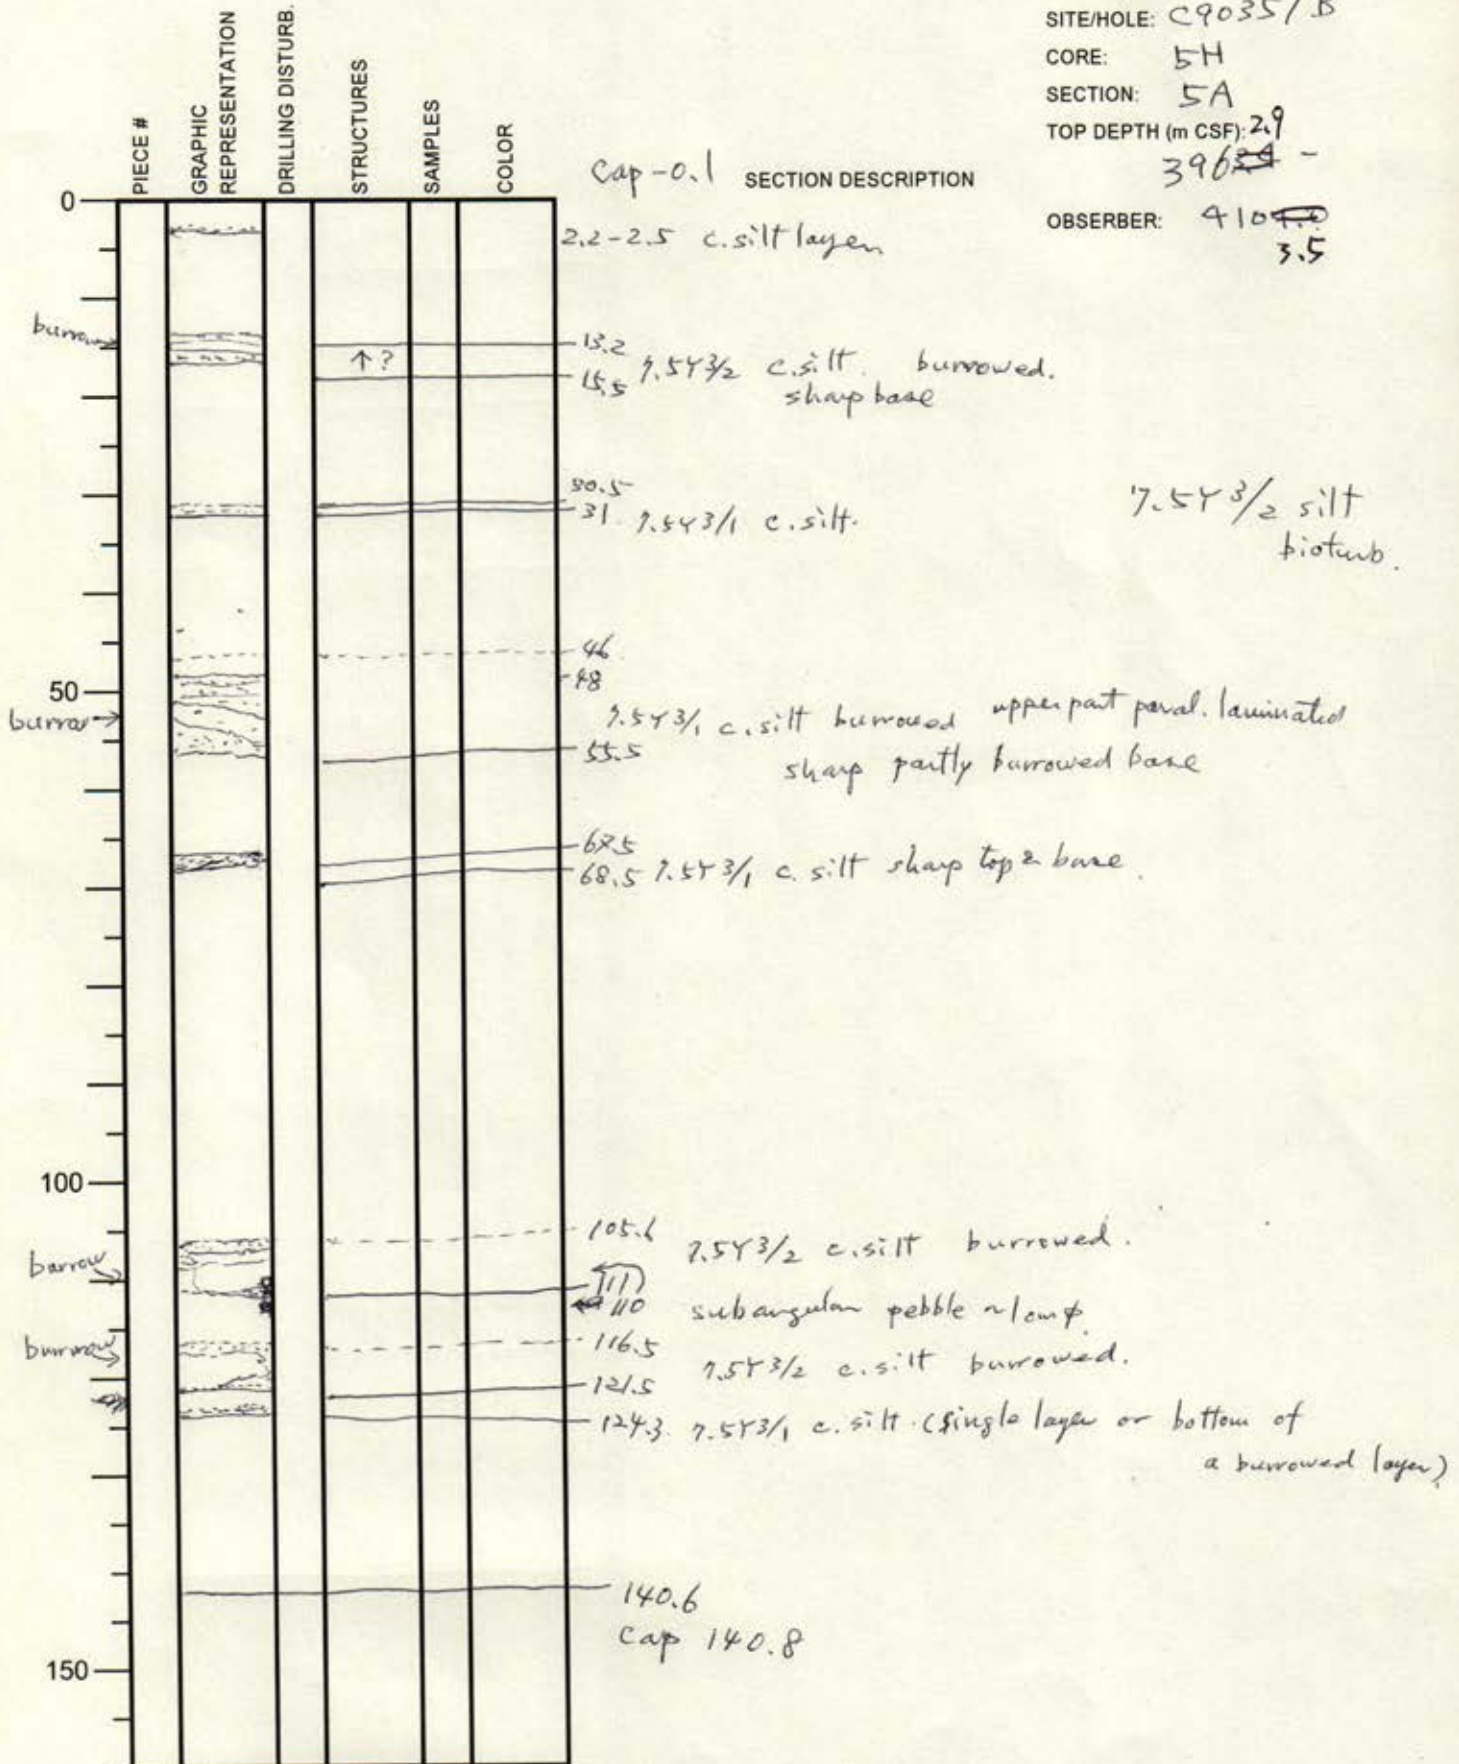 SITE/HOLE: C9035/B
CORE: 5H
SECTION: 5A
TOP DEPTH (m CSF): 2.9
396 -
OBSERBER: 410
3.5
PIECE #
GRAPHIC
REPRESENTATION
DRILLING DISTURB.
STRUCTURES
SAMPLES
COLOR
Cap-0.1 SECTION DESCRIPTION
0
2.2-2.5 c.silt layer
burrow
13.2
↑?
7.5Y3/2 c.silt. burrowed.
15.5
sharp base
30.5
31 7.5Y3/1 c.silt.
7.5Y 3/2 silt
bioturb.
46
48
50
burrow
7.5Y3/1 c.silt burrowed upper part paral. laminated
55.5
sharp partly burrowed base
67.5
68.5 7.5Y3/1 c. silt sharp top & base.
100
105.6
7.5Y3/2 c.silt burrowed.
barrow
111
110 subangular pebble ~1cmφ
burrow
116.5
7.5Y3/2 c.silt burrowed.
121.5
124.3 7.5Y3/1 c.silt (single layer or bottom of
a burrowed layer)
140.6
Cap 140.8
150